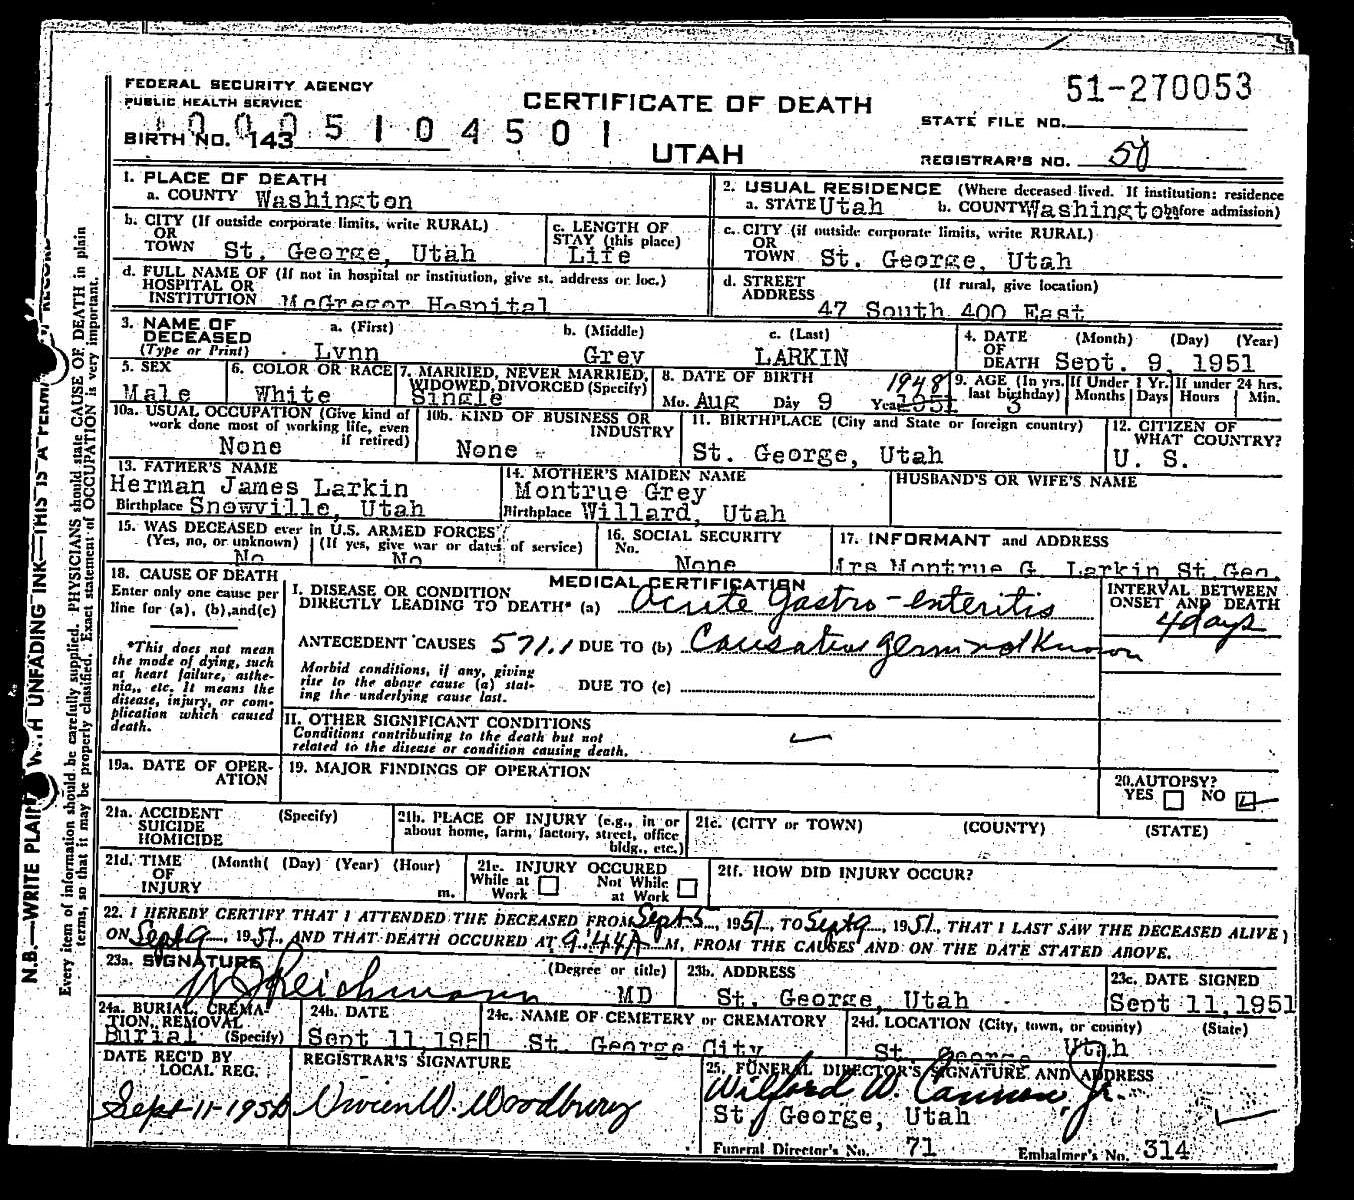 51-270053
FEDERAL SECURITY AGENCY
PUBLIC HEALTH SERVICE
CERTIFICATE OF DEATH
STATE FILE NO.
BIRTH NO. 143
0005104501
UTAH
REGISTRAR'S NO. 58
1. PLACE OF DEATH
a. COUNTY Washington
2. USUAL RESIDENCE (Where deceased lived. If institution: residence before admission)
a. STATE Utah b. COUNTY Washington
b. CITY (If outside corporate limits, write RURAL)
OR
TOWN St. George, Utah
c. LENGTH OF
STAY (this place)
Life
c. CITY (if outside corporate limits, write RURAL)
OR
TOWN St. George, Utah
d. FULL NAME OF (If not in hospital or institution, give st. address or loc.)
HOSPITAL OR
INSTITUTION McGregor Hospital
d. STREET (If rural, give location)
ADDRESS 47 South 400 East
3. NAME OF
DECEASED
(Type or Print)
a. (First) b. (Middle) c. (Last)
Lynn Grey LARKIN
4. DATE (Month) (Day) (Year)
OF
DEATH Sept. 9, 1951
5. SEX
Male
6. COLOR OR RACE
White
7. MARRIED, NEVER MARRIED,
WIDOWED, DIVORCED (Specify)
Single
8. DATE OF BIRTH 1948
Mo. Aug Day 9 Year 1951
9. AGE (In yrs. last birthday) 3
If Under 1 Yr. Months Days
If under 24 hrs. Hours Min.
10a. USUAL OCCUPATION (Give kind of
work done most of working life, even
if retired)
None
10b. KIND OF BUSINESS OR
INDUSTRY
None
11. BIRTHPLACE (City and State or foreign country)
St. George, Utah
12. CITIZEN OF
WHAT COUNTRY?
U. S.
13. FATHER'S NAME
Herman James Larkin
Birthplace Snowville, Utah
14. MOTHER'S MAIDEN NAME
Montrue Grey
Birthplace Willard, Utah
HUSBAND'S OR WIFE'S NAME
15. WAS DECEASED ever in U.S. ARMED FORCES?
(Yes, no, or unknown) (If yes, give war or dates of service)
No No
16. SOCIAL SECURITY
No.
None
17. INFORMANT and ADDRESS
Mrs Montrue G. Larkin St.Geo.
18. CAUSE OF DEATH
Enter only one cause per
line for (a), (b), and (c)
*This does not mean
the mode of dying, such
as heart failure, asthe-
nia, etc. It means the
disease, injury, or com-
plication which caused
death.
MEDICAL CERTIFICATION
I. DISEASE OR CONDITION
DIRECTLY LEADING TO DEATH* (a) Acute gastro-enteritis
INTERVAL BETWEEN
ONSET AND DEATH
4 days
ANTECEDENT CAUSES 571.1 DUE TO (b) Causative germ not known
Morbid conditions, if any, giving
rise to the above cause (a) stat-
ing the underlying cause last.
DUE TO (c)
II. OTHER SIGNIFICANT CONDITIONS
Conditions contributing to the death but not
related to the disease or condition causing death.
19a. DATE OF OPER-
ATION
19. MAJOR FINDINGS OF OPERATION
20. AUTOPSY?
YES NO
21a. ACCIDENT (Specify)
SUICIDE
HOMICIDE
21b. PLACE OF INJURY (e.g., in or
about home, farm, factory, street, office
bldg., etc.)
21c. (CITY or TOWN) (COUNTY) (STATE)
21d. TIME (Month( (Day) (Year) (Hour)
OF
INJURY m.
21e. INJURY OCCURED
While at Work Not While at Work
21f. HOW DID INJURY OCCUR?
22. I HEREBY CERTIFY THAT I ATTENDED THE DECEASED FROM Sept 5, 1951, TO Sept 9, 1951, THAT I LAST SAW THE DECEASED ALIVE
ON Sept 9, 1951, AND THAT DEATH OCCURED AT 9:44A M, FROM THE CAUSES AND ON THE DATE STATED ABOVE.
23a. SIGNATURE (Degree or title)
Reichmann MD
23b. ADDRESS
St. George, Utah
23c. DATE SIGNED
Sept 11, 1951
24a. BURIAL, CREMA-
TION, REMOVAL
Burial (Specify)
24b. DATE
Sept 11, 1951
24c. NAME OF CEMETERY or CREMATORY
St. George City
24d. LOCATION (City, town, or county) (State)
St. George Utah
DATE REC'D BY
LOCAL REG.
Sept-11-1951
REGISTRAR'S SIGNATURE
Vivien W. Woodbury
25. FUNERAL DIRECTOR'S SIGNATURE AND ADDRESS
Wilford W. Cannon, Jr.
St. George, Utah
Funeral Director's No. 71 Embalmer's No. 314
N.B.—WRITE PLAINLY WITH UNFADING INK—THIS IS A PERMANENT RECORD
Every item of information should be carefully supplied. PHYSICIANS should state CAUSE OF DEATH in plain
terms, so that it may be properly classified. Exact statement of OCCUPATION is very important.